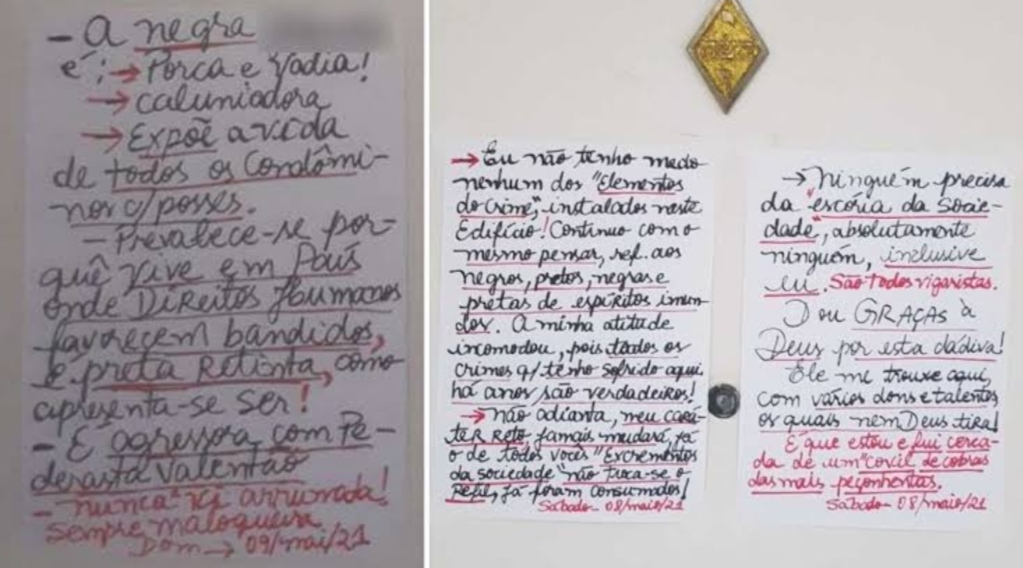 - A negra
é: → Porca e vadia!
→ caluniadora
→ Expõe a vida
de todos os Condômi-
nos c/posses.
- Prevalece-se por-
quê vive em País
onde DiReitos Humanos
favorecem bandidos,
e preta Retinta, como
apresenta-se ser!
- É agressora com Pe-
derasta valentão
- Nunca vi arrumada!
Sempre maloqueira
Dom → 09/mai/21
→ Eu não tenho medo
nenhum dos "Elementos
do Crime," instalados neste
Edifício! Continuo com o
mesmo pensar, ref. aos
negros, pretos, negras e
pretas de espíritos imun-
dos. A minha atitude
incomodou, pois todos os
crimes q/ tenho sofrido aqui,
há anos são verdadeiros!
→ não adianta, meu cará-
teR Reto, jamais mudará, já
o de todos vocês "Excrementos
da sociedade" não troca-se o
Refil, já foram consumados!
Sábado - 08/maio/21
→ Ninguém precisa
da "escória da Socie-
dade", absolutamente
ninguém, inclusive
eu. São todos vigaristas.
Dou GRAÇAS à
Deus por esta dádiva!
Ele me trouxe aqui,
com vários dons e talentos
os quais nem Deus tira!
É que estou e fui cerca-
da de um "covil de cobras
das mais peçonhentas.
Sábado - 08/maio/21